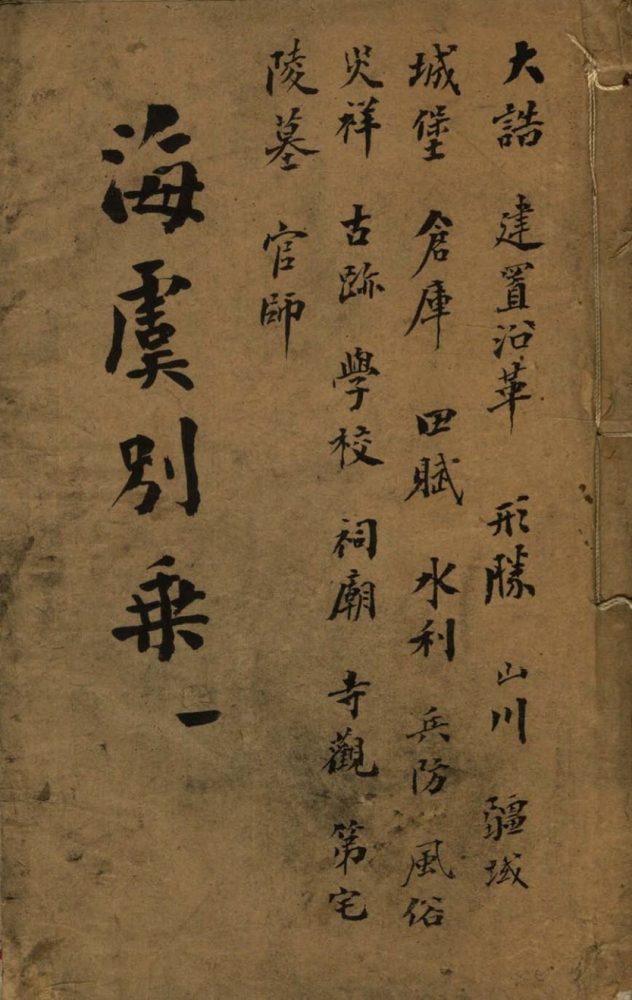 大誥 建置沿革 形勝 山川 疆域
城堡 倉庫 田賦 水利 兵防 風俗
災祥 古跡 學校 祠廟 寺觀 第宅
陵墓 官師
海虞別乘 一